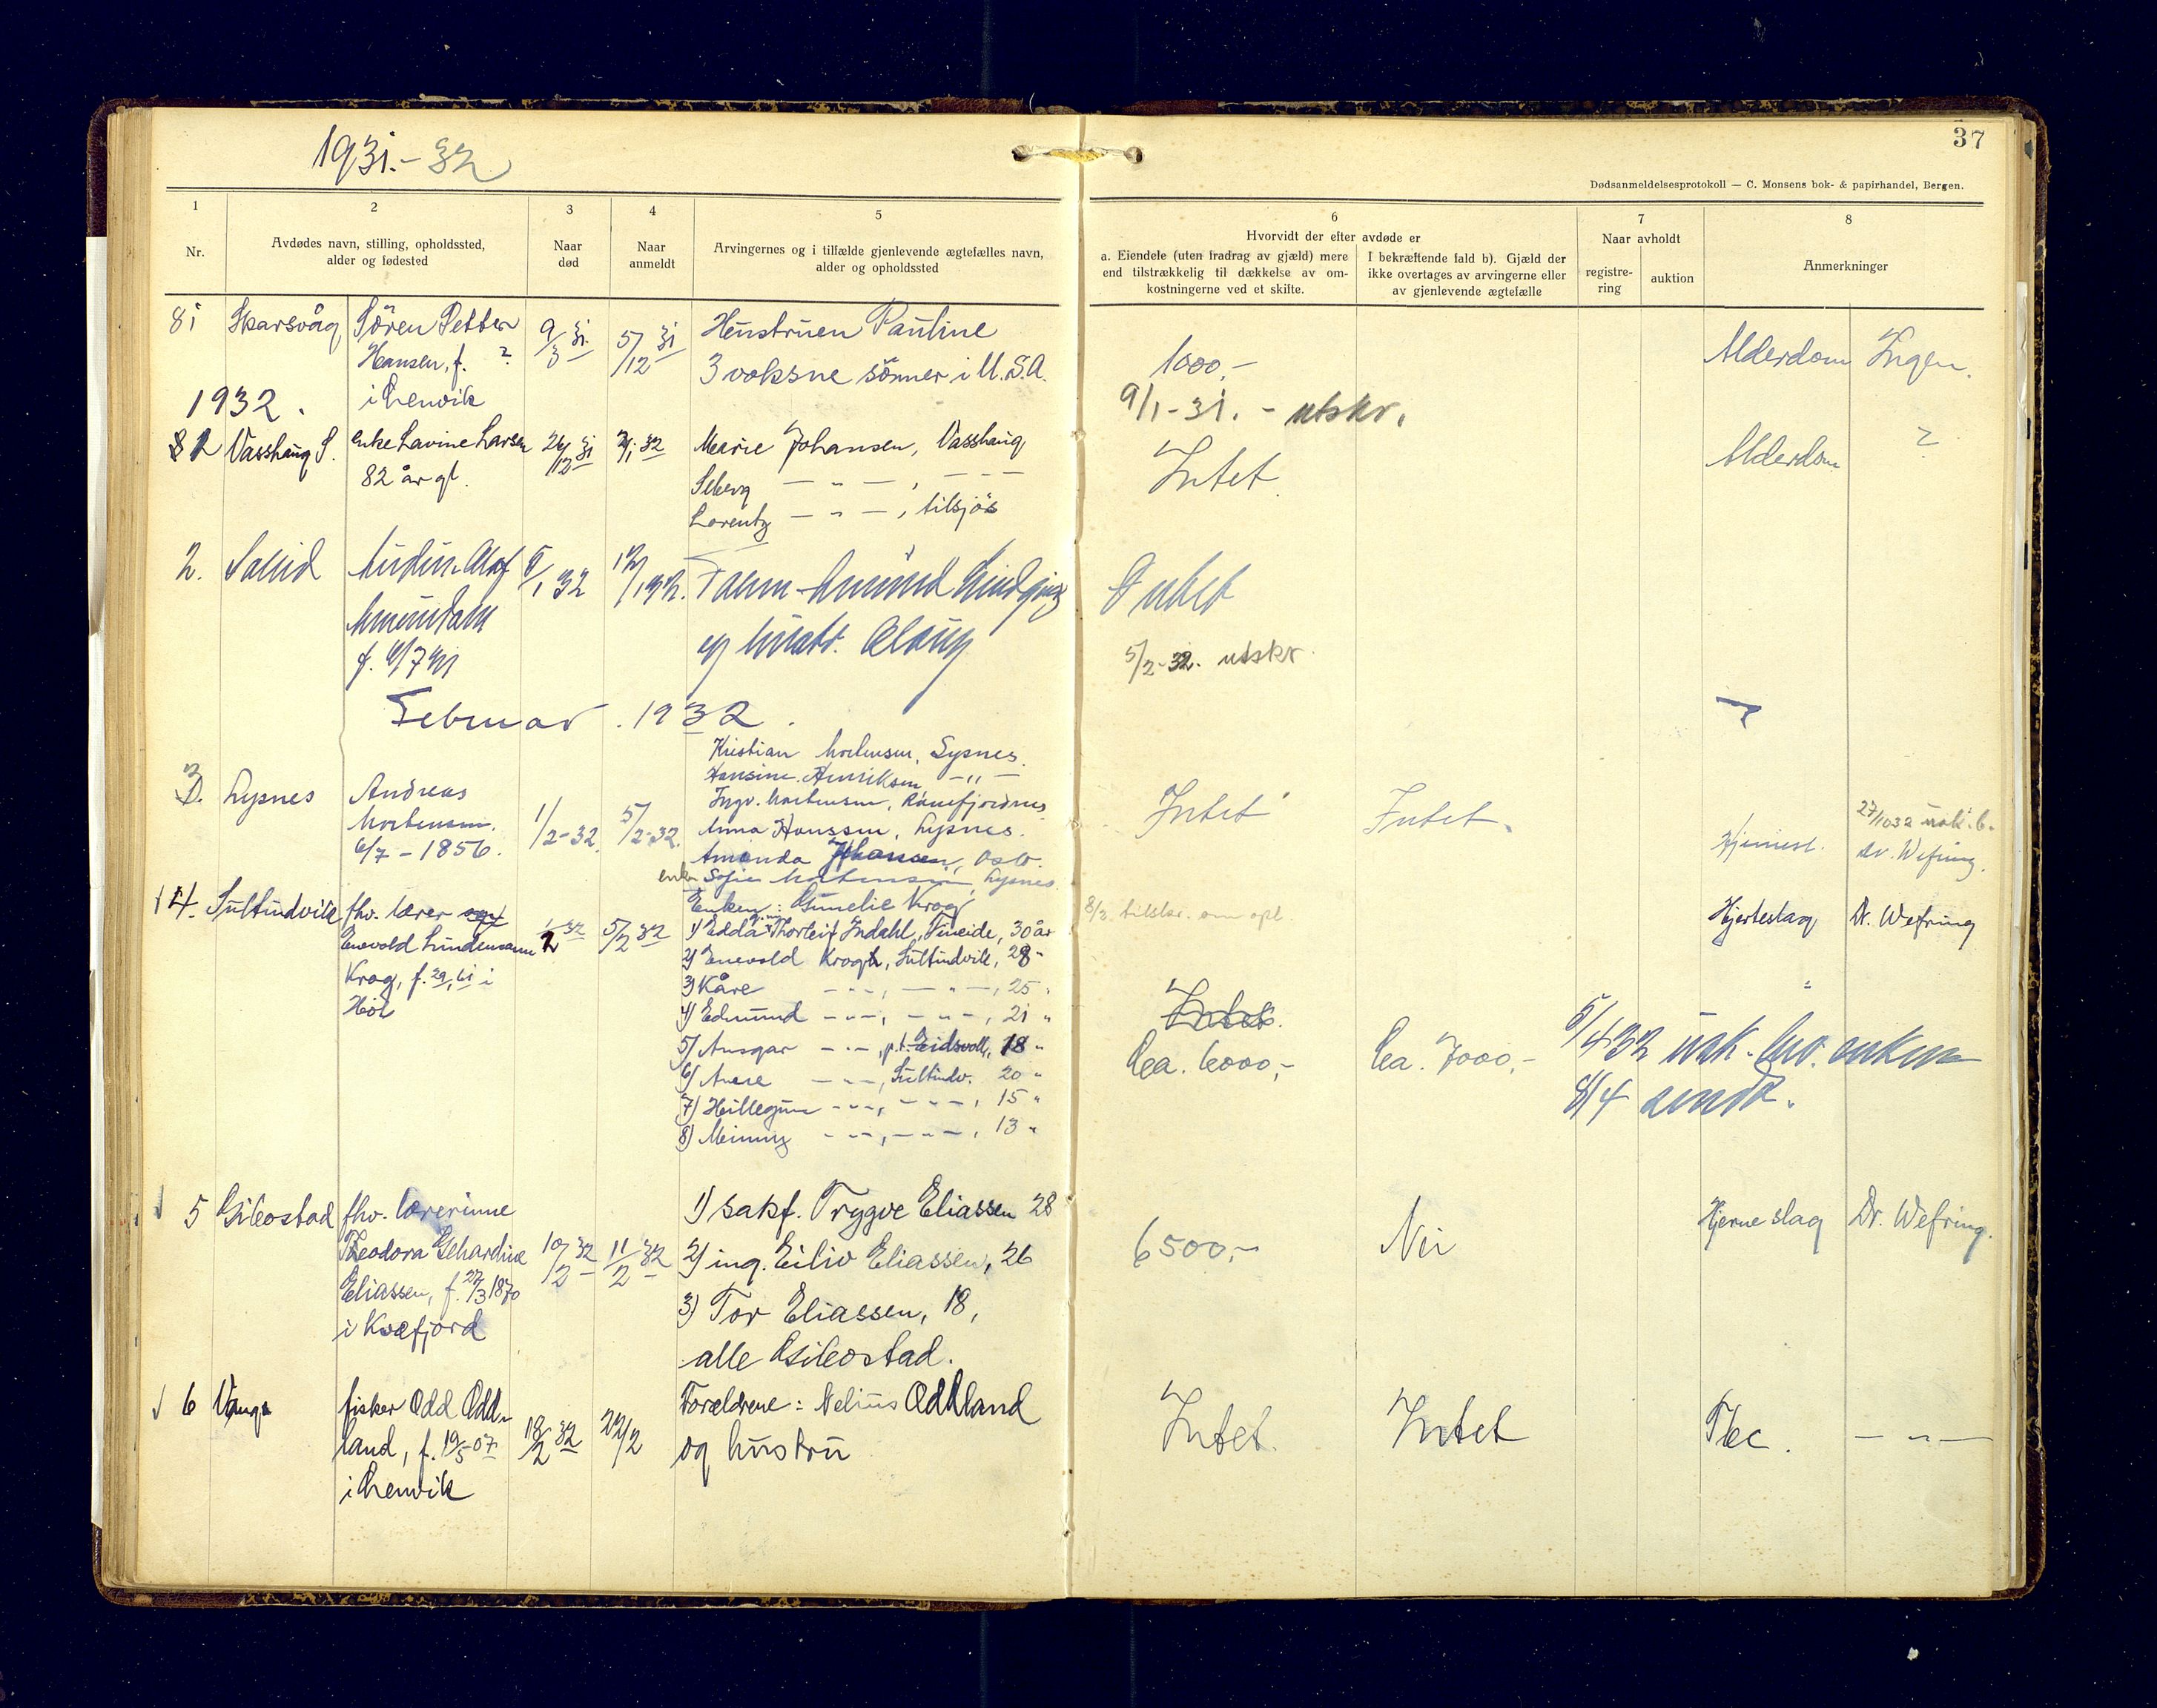 1931.-32
37
Dødsanmeldelsesprotokoll — C. Monsens bok- & papirhandel, Bergen.
1
2
3
4
5
6
7
8
Nr.
Avdødes navn, stilling, opholdssted,
alder og fødested
Naar
død
Naar
anmeldt
Arvingernes og i tilfælde gjenlevende ægtefælles navn,
alder og opholdssted
Hvorvidt der efter avdøde er
a. Eiendele (uten fradrag av gjæld) mere
end tilstrækkelig til dækkelse av om-
kostningerne ved et skifte.
I bekræftende fald b). Gjæld der
ikke overtages av arvingerne eller
av gjenlevende ægtefælle
Naar avholdt
registre-
ring
auktion
Anmerkninger
81 Skarsvåg Sören Petter
Hansen, f. ?
i Lenvik
9/3 31
5/12 31
Hustruen Pauline
3 voksne sönner i U.S.A.
1000,-
9/1-31. - utskr.
Alderdom Ingen.
1932.
1 Vasshaug S. enke Lavine Larsen
82 år gl.
26/12 31
Marie Johansen, Vasshaug
— " — , — " —
Lorentz — " — , tilsjös
Intet.
Alderdom
?
2.
f.
1/32
12/1 32.
og hustr.
Intet
5/2-32. utskr.
Februar. 1932.
Lysnes Andreas
Mortensen.
6/7-1856.
1/2-32.
5/2-32.
Kristian Mortensen, Lysnes.
Hansine Henriksen — " —
Ingv. Mortensen,
Anna Hanssen, Lysnes.
Amanda Johansen, Oslo.
enke Sofie Mortensen, Lysnes.
Intet
Intet.
Dr. Wefring.
4. Sultindvik fhv. lærer
Enevold Lindemann
Krog, f. i
Hol
5/2 32
Enken: Gunelie Krog
1) Edda Thorleif Indahl, Fineide, 30 år
2) Enevold Krogh, Sultindvik, 28 "
3) Kåre — " —, — " —, 25 "
4) Edmund — " —, — " —, 21 "
5) Ansgar — " —, p.t. Eidsvoll, 18 "
6) Aase — " —, Sultindv. 20 "
7) Hillegunn — " —, — " —, 15 "
8) — " —, — " —, 13 "
8/3. tilskr. om opl.
Intet.
Ca. 6000,-
Ca. 7000,-
5/4 32 enken
8/4 sendt.
Hjerteslag Dr. Wefring
5 Gibostad fhv. lærerinne
Theodora Gehardine
Eliassen, f. 27/3 1870
i Kvæfjord
10/2 32
11/2 32
1) sakf. Trygve Eliassen 28
2) ing. Eiliv Eliassen, 26
3) Tor Eliassen, 18,
alle Gibostad.
6500,-
Nei
Hjerneslag Dr. Wefring.
6 Vang fisker Odd Odd-
land, f. 19/5-07
i Lenvik
18/2 32
22/2
Forældrene: Nelius Oddland
og hustru
Intet.
Intet
Tbc. — " —